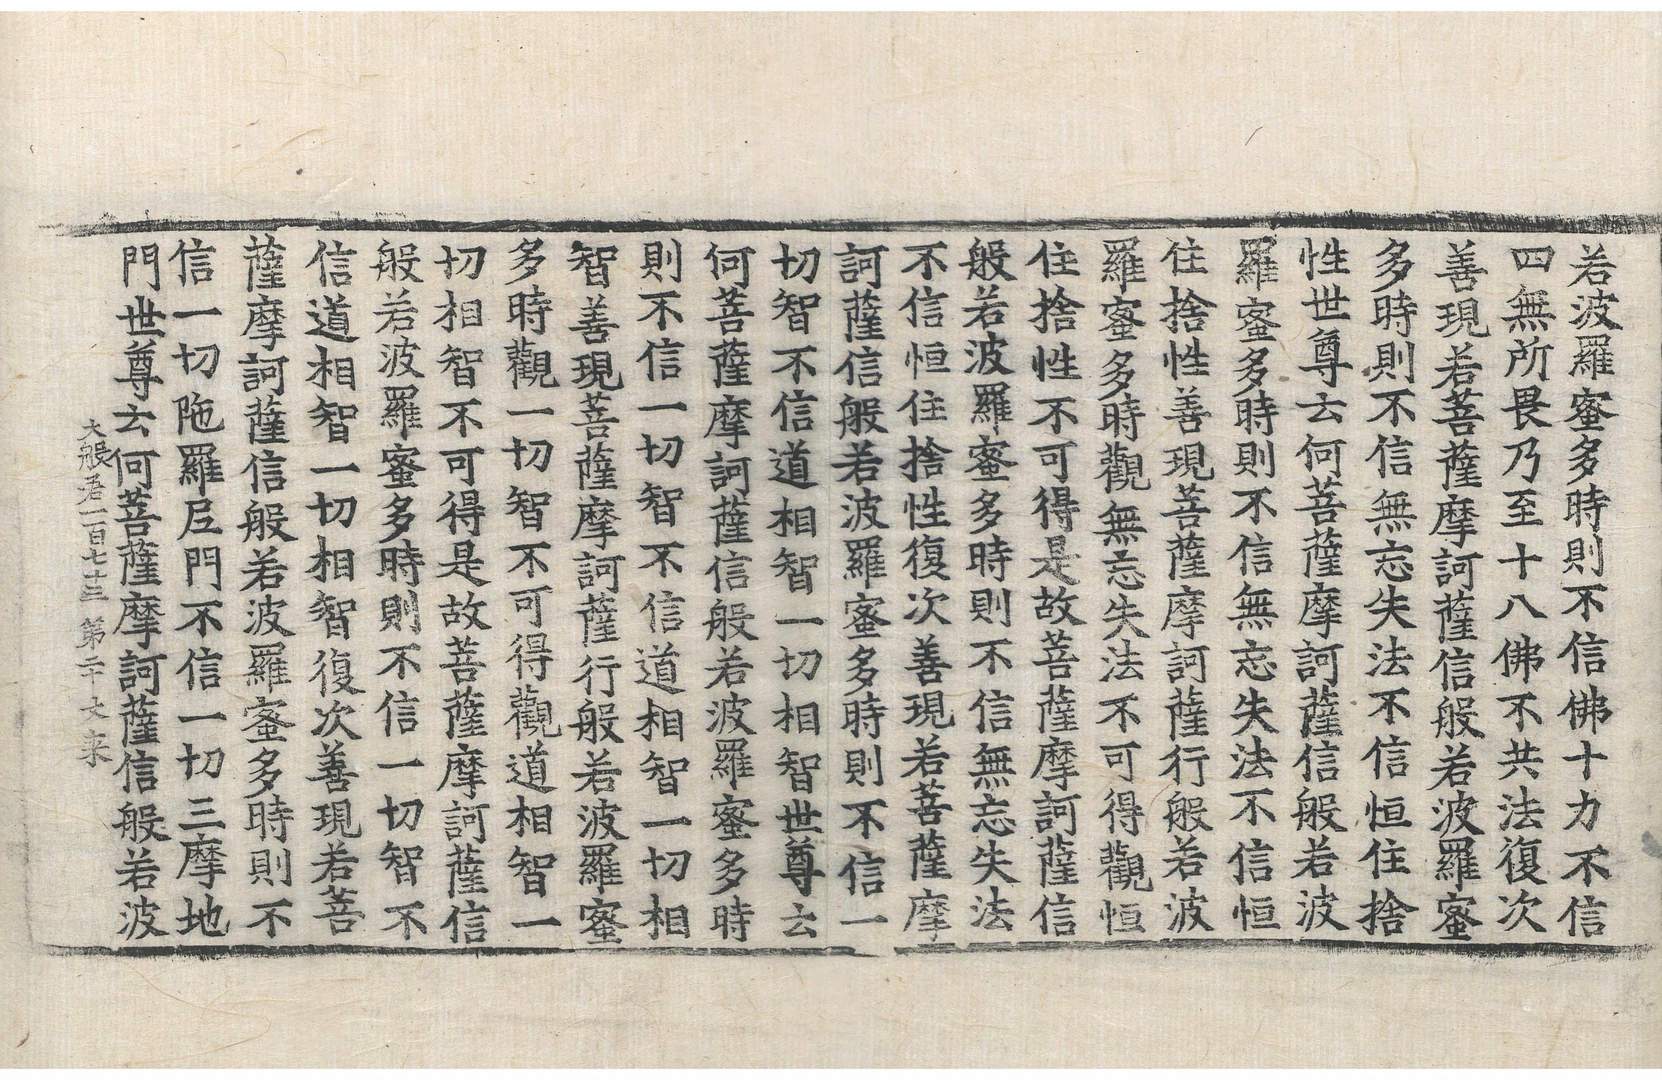 若波羅蜜多時則不信佛十力不信
四無所畏乃至十八佛不共法復次
善現若菩薩摩訶薩信般若波羅蜜
多時則不信無忘失法不信恒住捨
性世尊云何菩薩摩訶薩信般若波
羅蜜多時則不信無忘失法不信恒
住捨性善現菩薩摩訶薩行般若波
羅蜜多時觀無忘失法不可得觀恒
住捨性不可得是故菩薩摩訶薩信
般若波羅蜜多時則不信無忘失法
不信恒住捨性復次善現若菩薩摩
訶薩信般若波羅蜜多時則不信一
切智不信道相智一切相智世尊云
何菩薩摩訶薩信般若波羅蜜多時
則不信一切智不信道相智一切相
智善現菩薩摩訶薩行般若波羅蜜
多時觀一切智不可得觀道相智一
切相智不可得是故菩薩摩訶薩信
般若波羅蜜多時則不信一切智不
信道相智一切相智復次善現若菩
薩摩訶薩信般若波羅蜜多時則不
信一切陁羅尼門不信一切三摩地
門世尊云何菩薩摩訶薩信般若波
大般若一百七十三 第二十丈 来